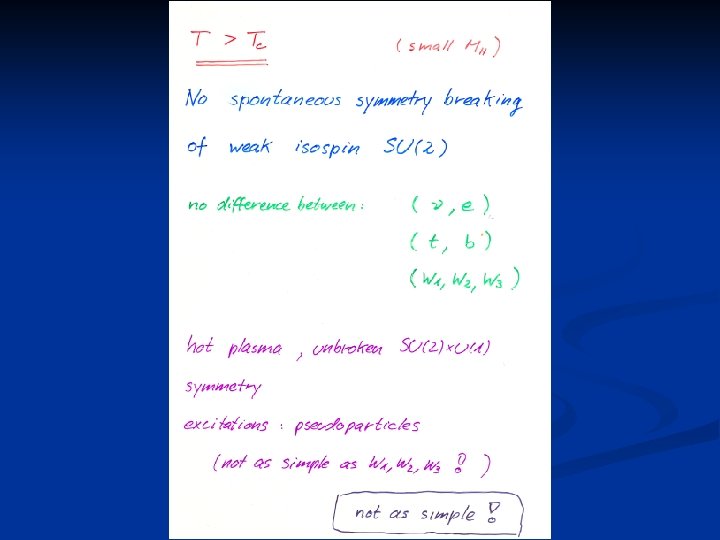 T > Tc (small MH)
No spontaneous symmetry breaking
of weak isospin SU(2)
no difference between: (ν, e)
(t, b)
(W1, W2, W3)
hot plasma, unbroken SU(2)×U(1)
symmetry
excitations: pseudoparticles
(not as simple as W1, W2, W3 !)
not as simple !